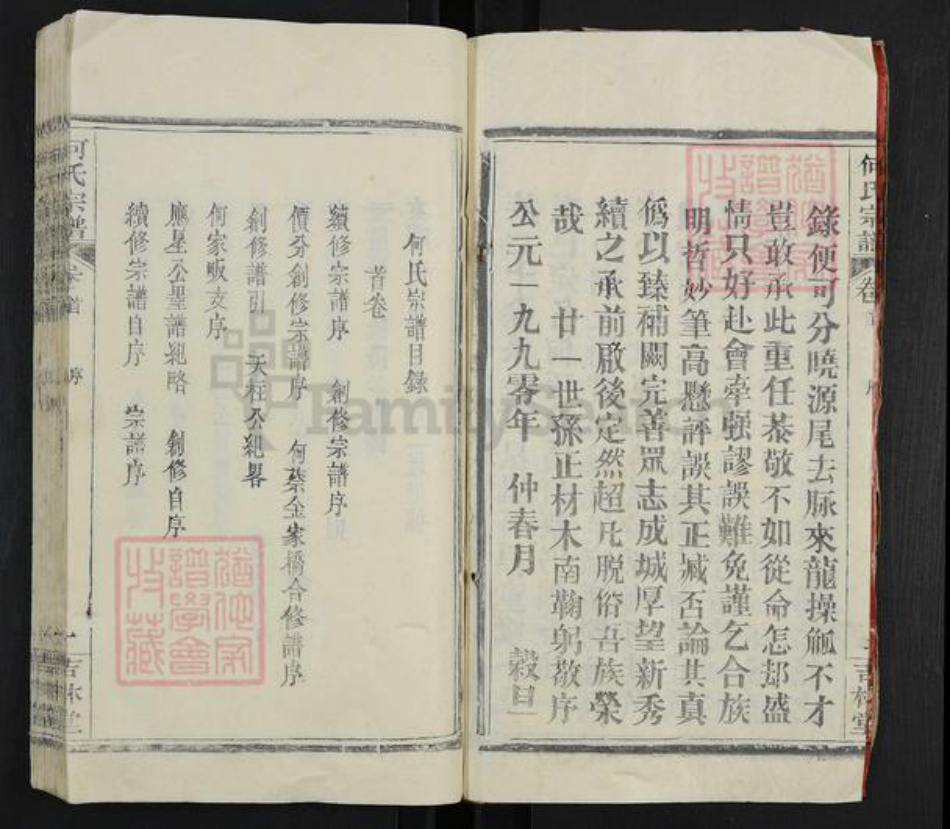 何氏宗譜
卷首
序
吉林堂
錄便可分曉源尾去脉來龍操觚不才
豈敢承此重任恭敬不如從命怎却盛
情只好赴會牽强謬誤難免謹乞合族
明哲妙筆高懸評誤其正臧否論其真
偽以臻補闕完善眾志成城厚望新秀
續之承前啟後定然超凡脫俗吾族榮
哉 廿一世孫正材木南鞠躬敬序
公元一九九零年 仲春月 穀日
何氏宗譜目錄
首卷
續修宗譜序 創修宗譜序
價分創修宗譜序 何蔡金家橋合修譜序
創修譜引 天柱公紀畧
何家畈支序
應星公聖譜紀略 創修自序
續修宗譜自序 宗譜序
何氏宗譜
卷首
序
吉林堂
猶他家譜學會收藏
猶他家譜學會收藏
FamilySearch